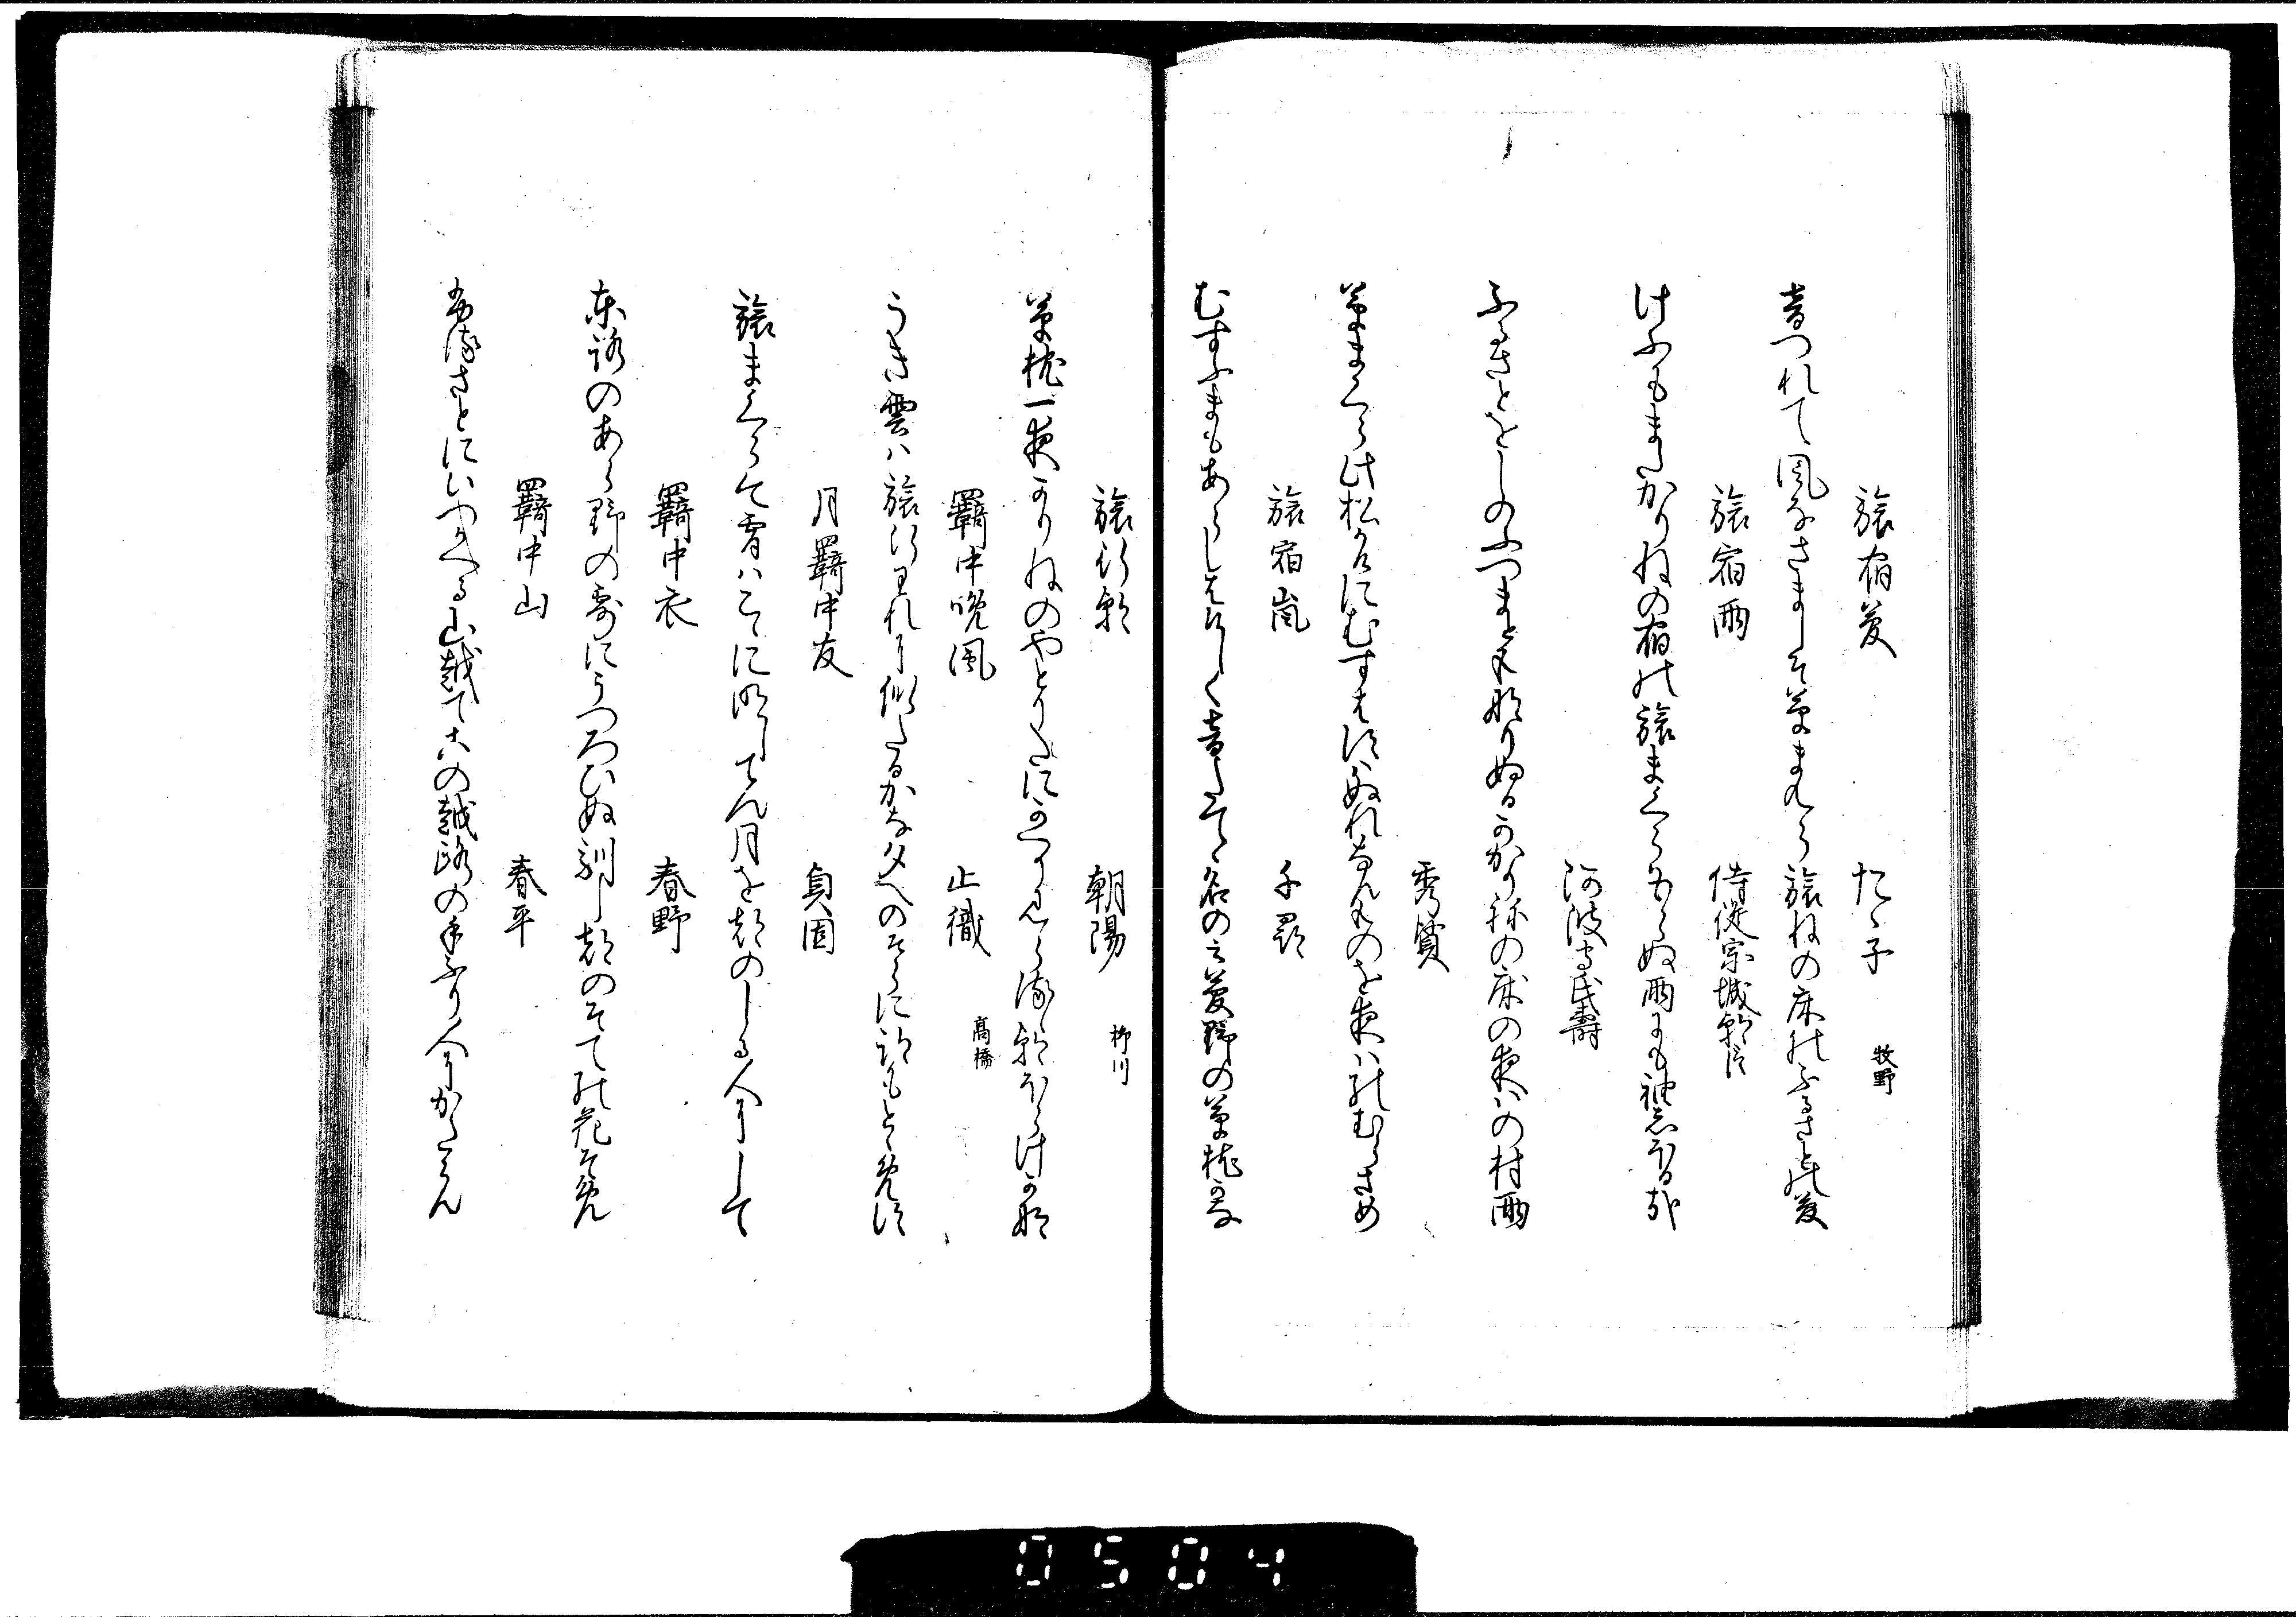 旅宿夢 たゝ子 牧野
音つれて風なさましそ草まくら旅ねの床のふるさとの夢
旅宿雨 侍従宗城朝臣
けふもまたかりねの宿の旅まくらもらぬ雨にも袖しほる哉
阿波守氏壽
ふるさとをしのふつまと成りぬるかかり祢の床の夜はの村雨
秀賢
草まくら此松かねにむすはすはぬれなんものを夜はのむらさめ
旅宿嵐 千
むすふまもあらしはけしく音たてゝ名のみ夢野の草枕かな
旅行朝 朝陽 柳川
草枕一夜かりねのやとりたにかへり見らるゝ朝ほらけかな
羇中晩風 正徽 高橋
うき雲は旅行われに似たるかな夕への空に
月羇中友 貞固
旅まくらこて宵はこゝに明してん月を都のしる人にして
羇中衣 春野
東路のあら野の露にうつろひぬ馴し都のそての花そめ
羇中山 春平
さとにいつかへる山越てこの越路の手ふり人にかたらん
0504